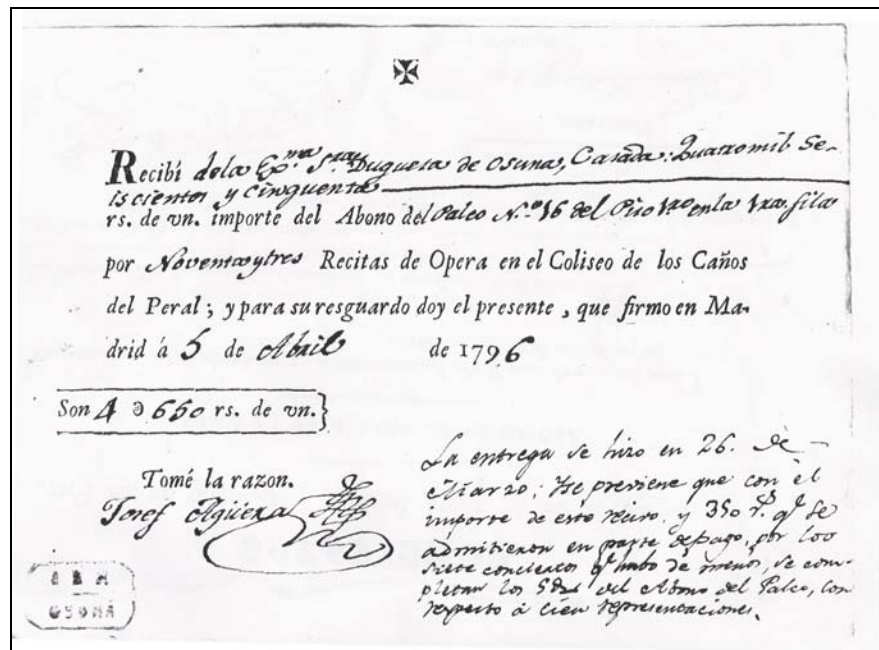 Recibí dela Ex.ma S.ra Duquesa de Osuna, Casada: Quatromil Se-
is cientos y cinquenta
rs. de vn. importe del Abono del Palco N.º 16 del Piso 1.ro en la 1.ra fila
por Noventa y tres Recitas de Opera en el Coliseo de los Caños
del Peral; y para su resguardo doy el presente, que firmo en Ma-
drid á 5 de Abril de 1796
Son 4 650 rs. de vn.
Tomé la razon.
Josef Agüera
La entrega se hizo en 26. de
Marzo; se previene que con el
importe de este recivo. y 350 r.s q.e se
admitieron en parte de pago, por los
siete conciertos q.e hubo de menos, se com-
pletan los del Abono del Palco, con
respecto á cien representaciones.
OSUNA